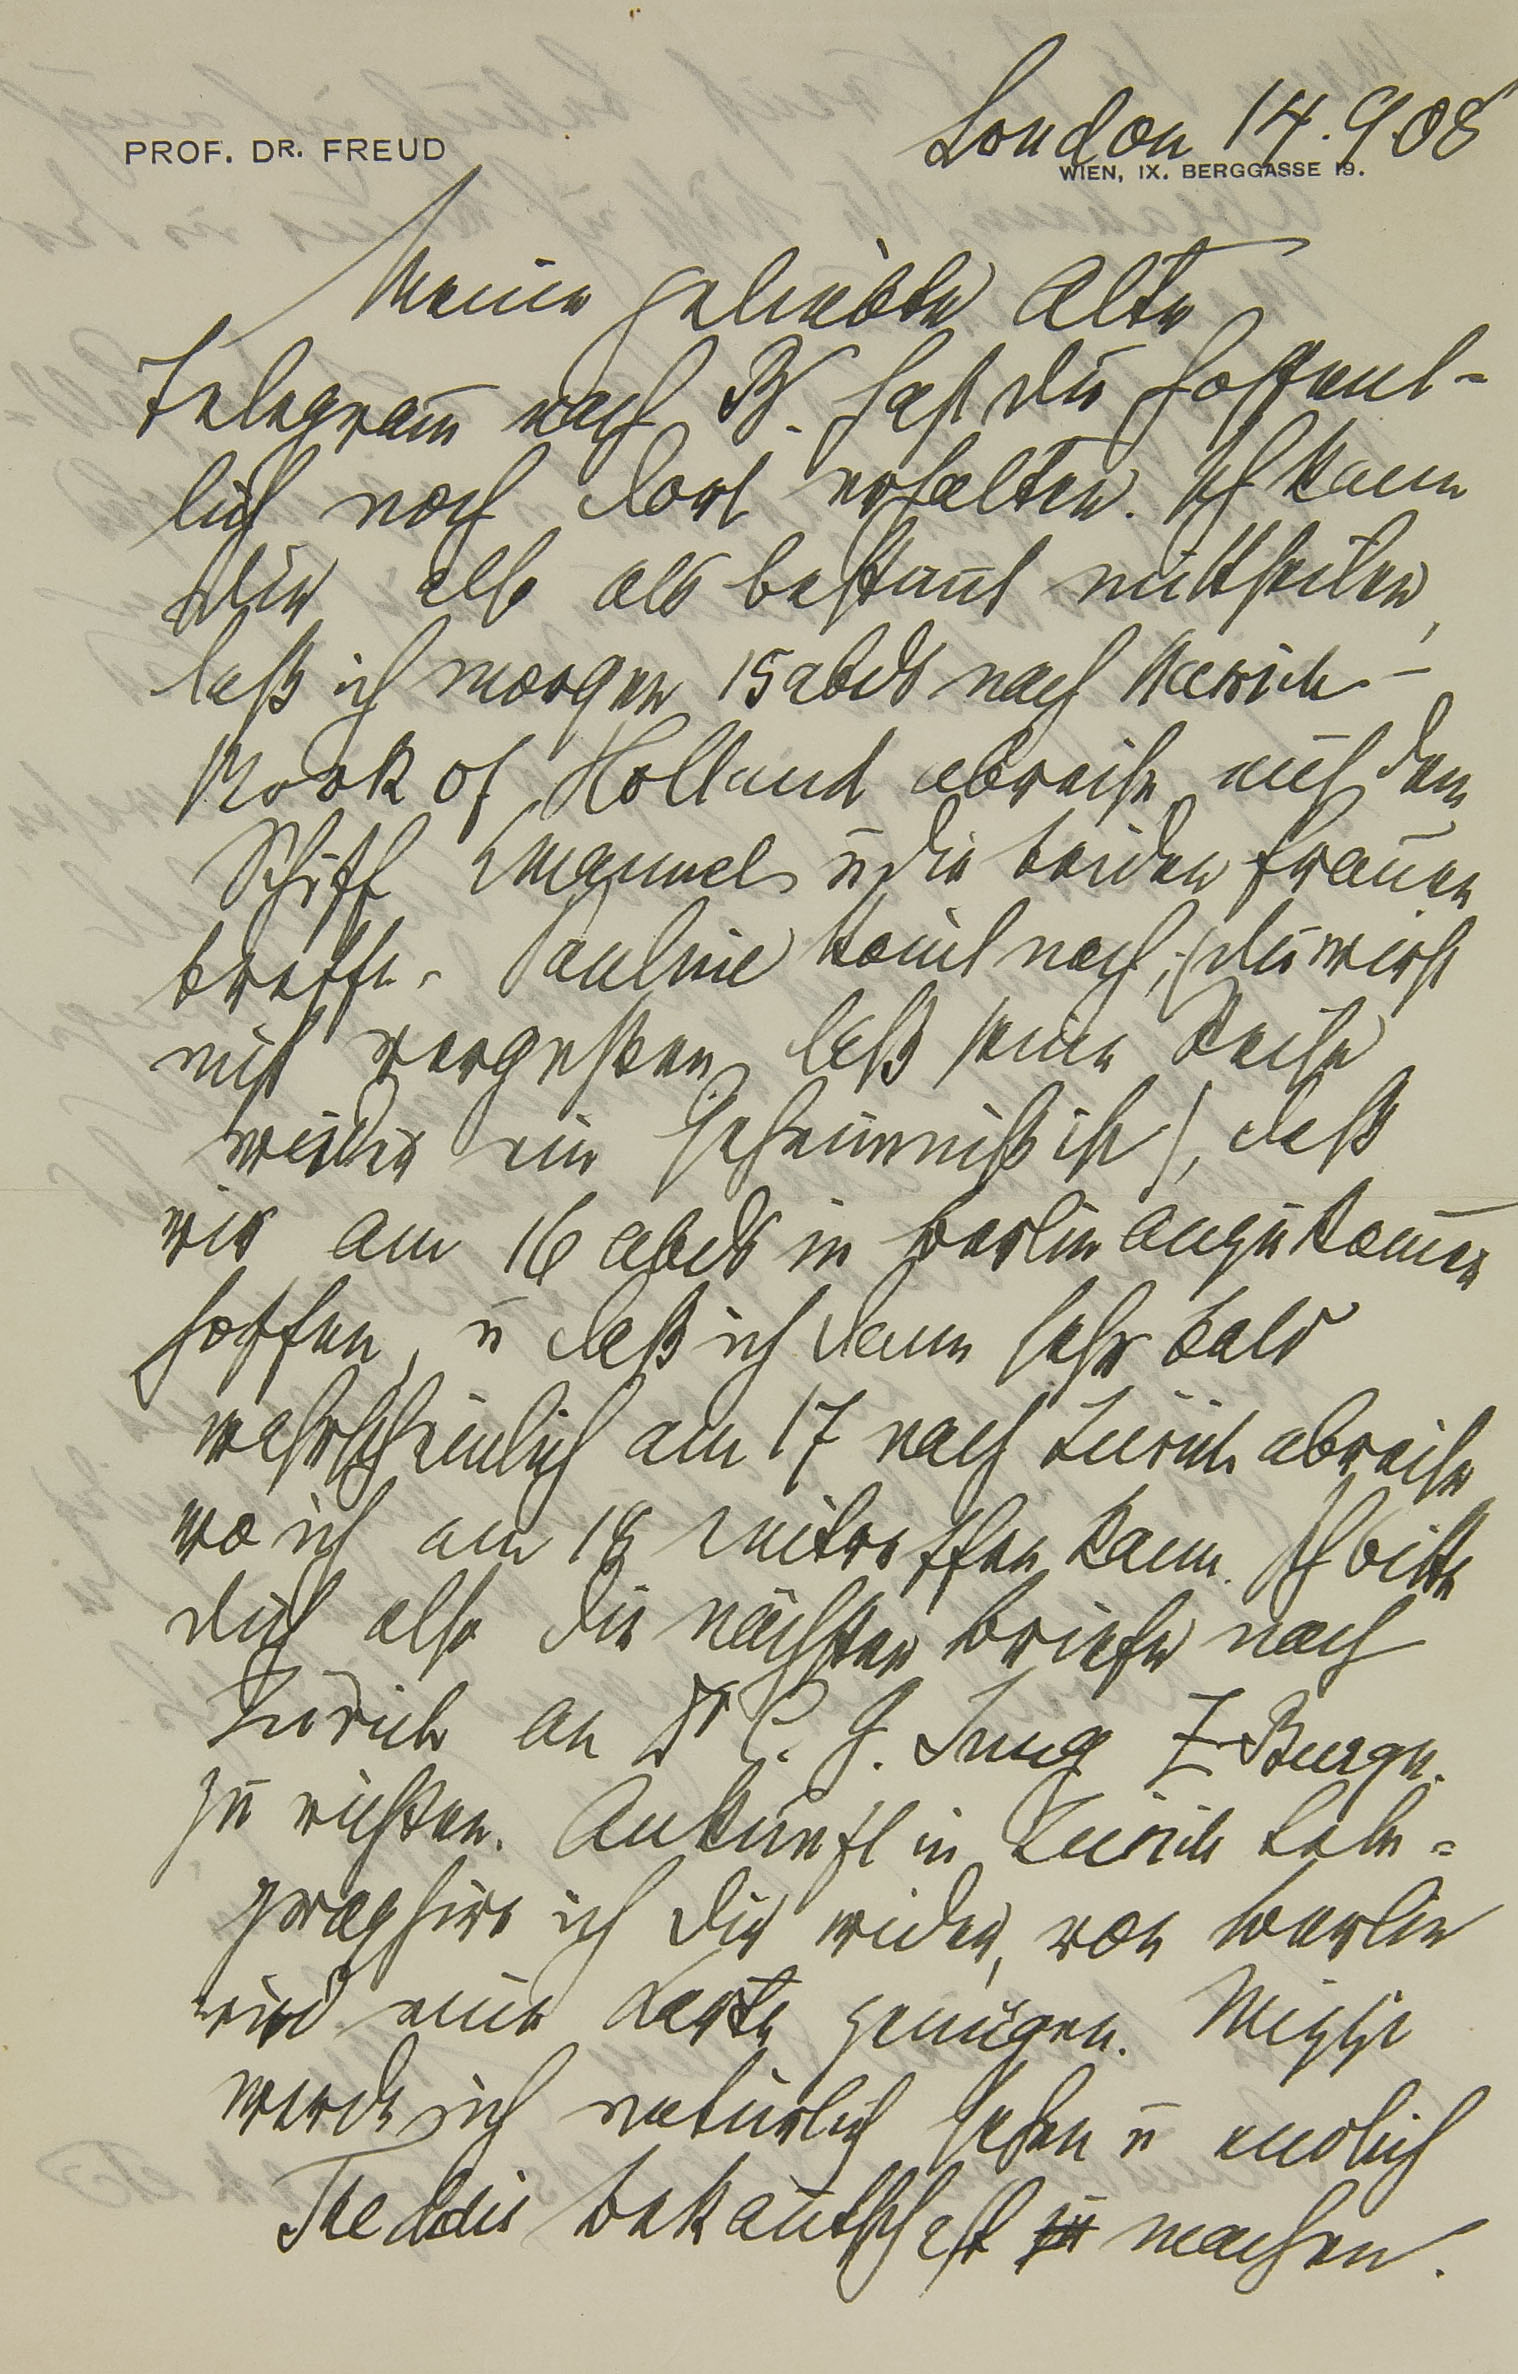 PROF. DR. FREUD
London 14.9.08
WIEN, IX. BERGGASSE 19.
Meine geliebte Alte
Telegramm nach B. hast du hoffent-
lich noch dort erhalten. Ich kann
dir also als bestimt mittheilen,
daß ich morgen 15 abds nach Harwich-
Hook of Holland abreise auf dem
Schiff Emanuel u die beiden Frauen
treffe. Pauline komt nach, (du wirst
nicht vergessen daß seine Reise
wieder ein Geheimniß ist), daß
wir am 16 abds in Berlin anzukomen
hoffen, u daß ich dann sehr bald
wahrscheinlich am 17 nach Zürich abreise
wo ich am 18 eintreffen kann. Ich bitte
dich also die nächsten Briefe nach
Zürich an Dr C. G. Jung Z-Burgh.
zu richten. Ankunft in Zürich tele=
graphire ich dir wieder, von Berlin
wird eine Karte genügen. Mizzi
werde ich natürlich sehen u endlich
Teddis Bekantschaft machen.